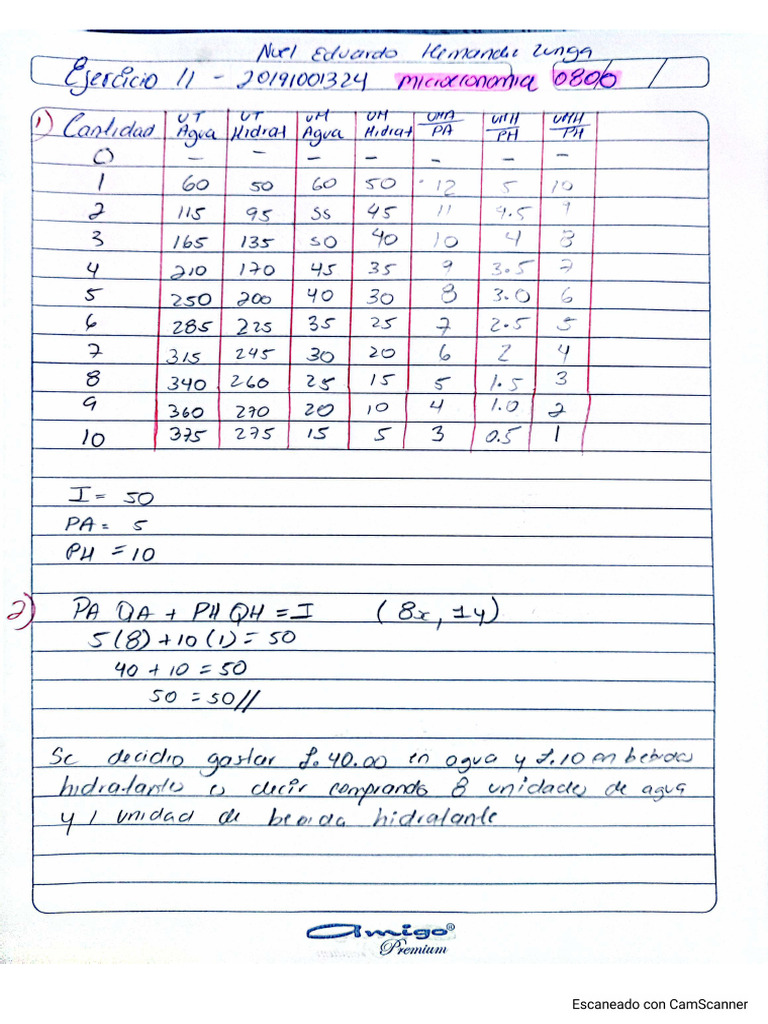 Nuel Eduardo Hernandez Zunga
Ejercicio 11 - 20191001324 microeconomia 0800
1) Cantidad UT Agua UT Hidrat UM Agua UM Hidrat UMA/PA UMH/PH UMH/PH
0 - - - - - - -
1 60 50 60 50 12 5 10
2 115 95 55 45 11 4.5 9
3 165 135 50 40 10 4 8
4 210 170 45 35 9 3.5 7
5 250 200 40 30 8 3.0 6
6 285 225 35 25 7 2.5 5
7 315 245 30 20 6 2 4
8 340 260 25 15 5 1.5 3
9 360 270 20 10 4 1.0 2
10 375 275 15 5 3 0.5 1
I = 50
PA = 5
PH = 10
2) PA QA + PH QH = I (8x, 1y)
5(8) + 10(1) = 50
40 + 10 = 50
50 = 50//
Se decidio gastar L.40.00 en agua y L.10 en bebidas
hidratante es decir comprando 8 unidades de agua
y 1 unidad de bebida hidratante
amigo®
Premium
Escaneado con CamScanner